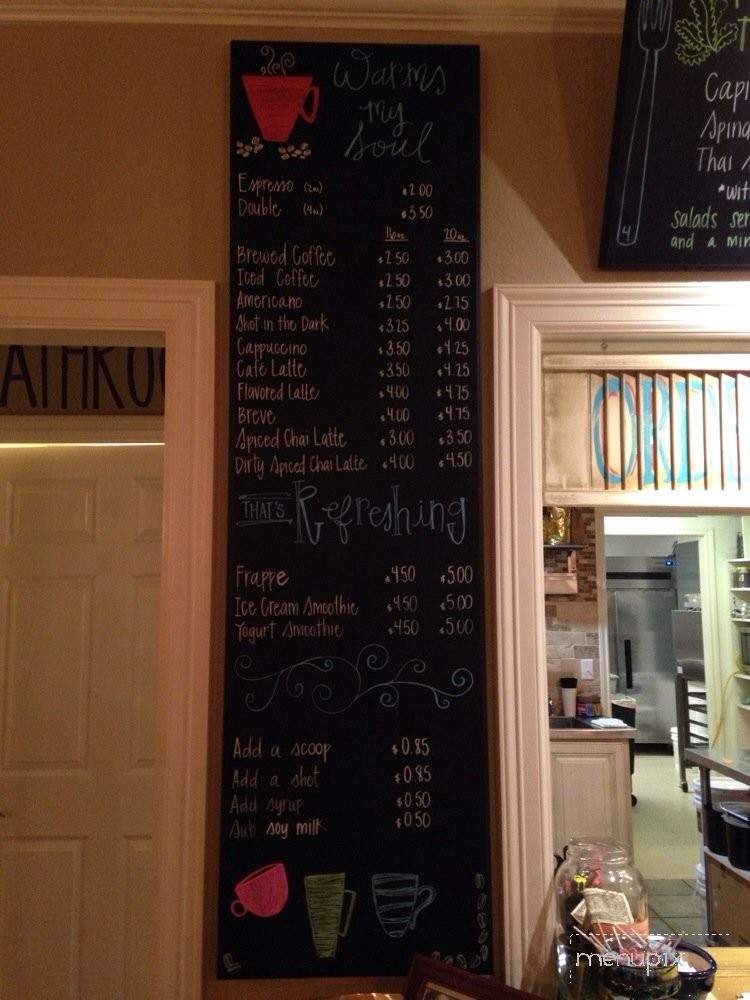 Warms
my
Soul
Espresso (2oz) $2.00
Double (4oz) $3.50
16oz 20oz
Brewed Coffee $2.50 $3.00
Iced Coffee $2.50 $3.00
Americano $2.50 $2.75
Shot in the Dark $3.25 $4.00
Cappuccino $3.50 $4.25
Café Latte $3.50 $4.25
Flavored Latte $4.00 $4.75
Breve $4.00 $4.75
Spiced Chai Latte $3.00 $3.50
Dirty Spiced Chai Latte $4.00 $4.50
THAT'S Refreshing
Frappe $4.50 $5.00
Ice Cream Smoothie $4.50 $5.00
Yogurt Smoothie $4.50 $5.00
Add a scoop $0.85
Add a shot $0.85
Add syrup $0.50
Sub soy milk $0.50
Capi
Spina
Thai S
*wit
salads ser
and a min
4
ATHRO
ORDE
menupix